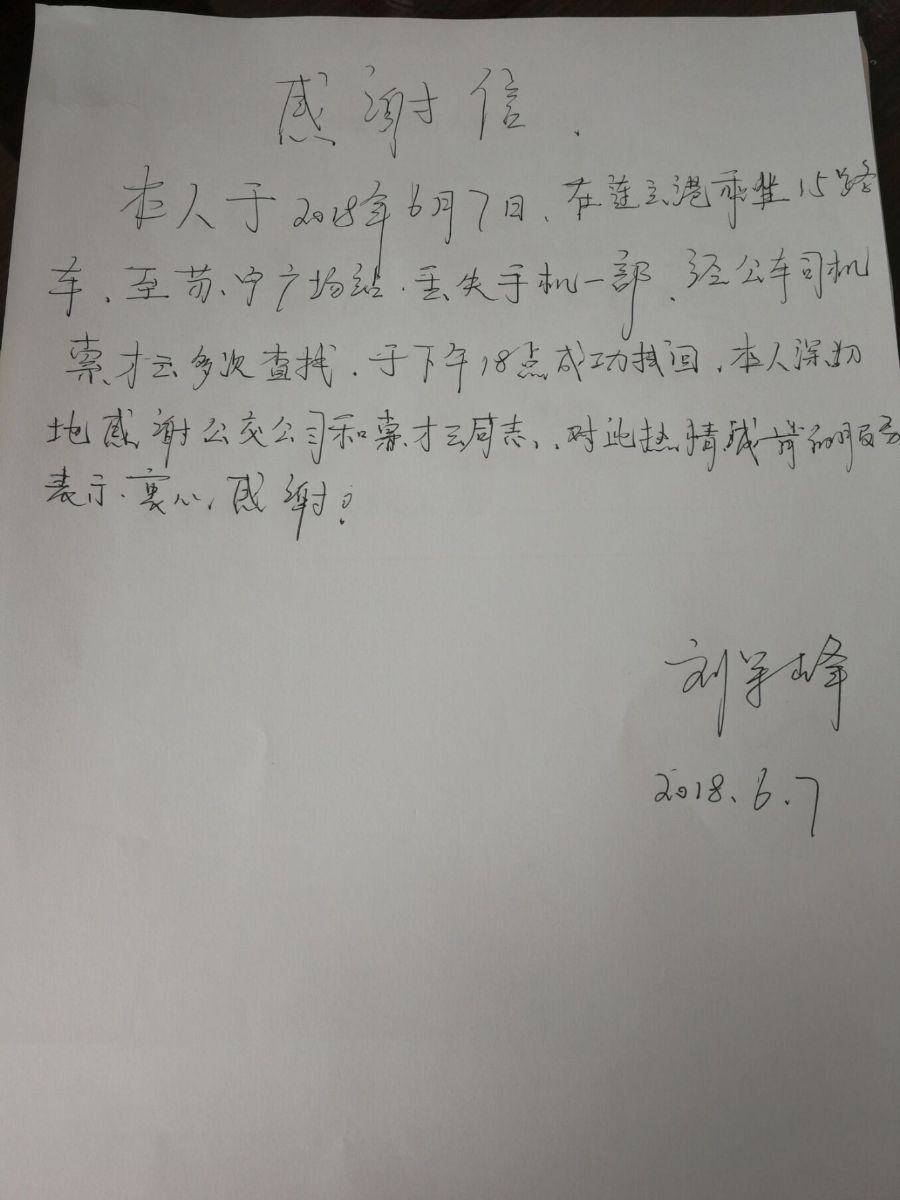 感谢信.
本人于2018年6月7日、在连云港乘坐15路
车、至苏宁广场站.丢失手机一部、经公车司机
才云多次查找、于下午18点成功找回、本人深切
地感谢公交公司和才云同志、对此热情诚肯的服务
表示衷心感谢!
刘军峰
2018.6.7